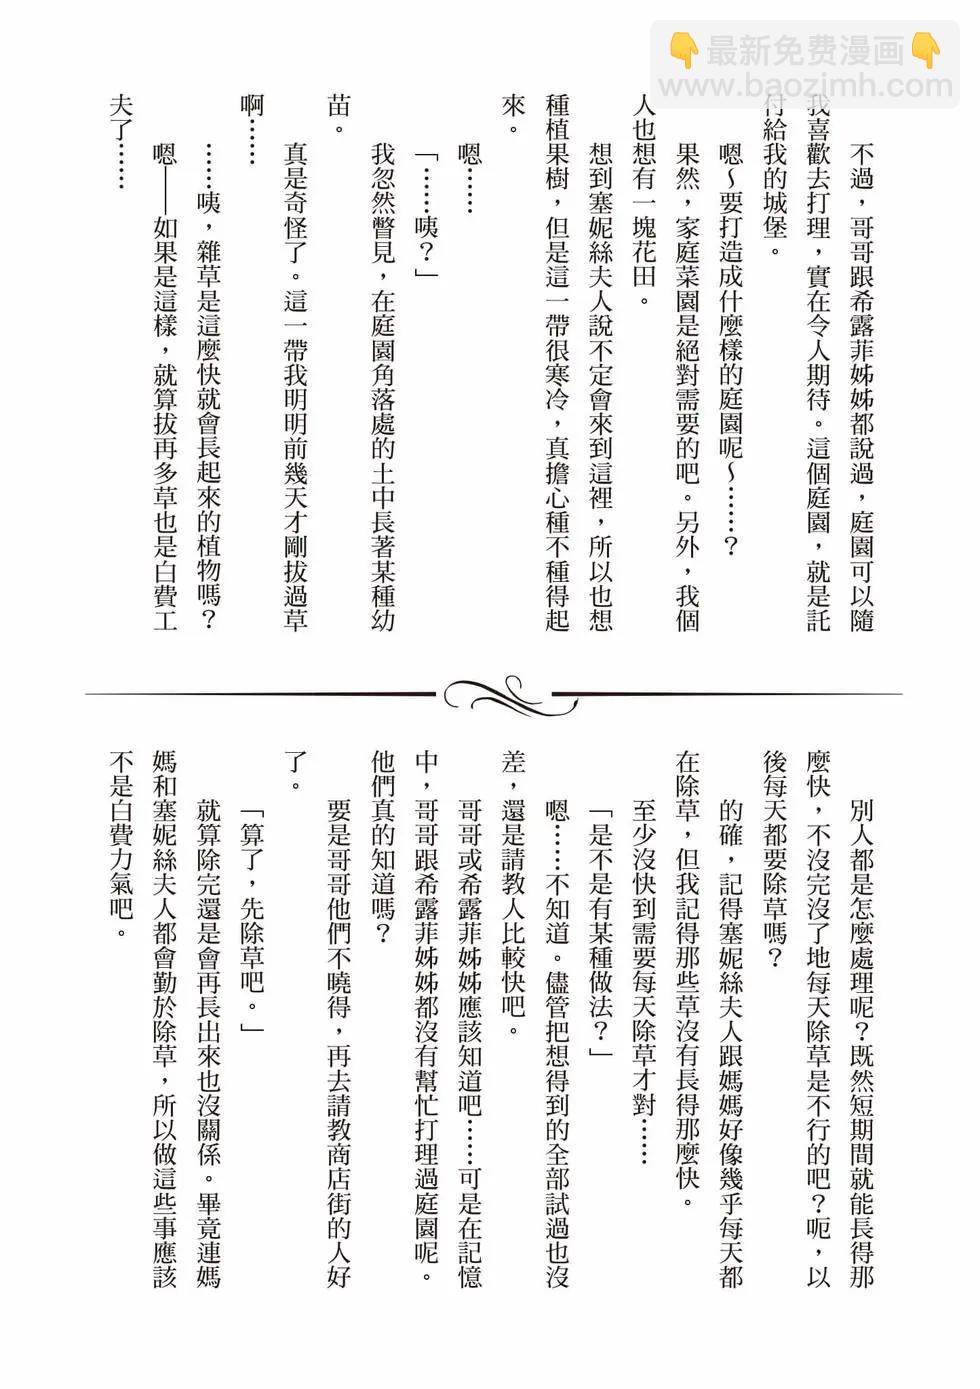 最新免费漫画
www.baozimh.com
不過，哥哥跟希露菲姊姊都說過，庭園可以隨
我喜歡去打理，實在令人期待。這個庭園，就是託
付給我的城堡。
嗯～要打造成什麼樣的庭園呢～………？
果然，家庭菜園是絕對需要的吧。另外，我個
人也想有一塊花田。
想到塞妮絲夫人說不定會來到這裡，所以也想
種植果樹，但是這一帶很寒冷，真擔心種不種得起
來。
嗯……
「……咦？」
我忽然瞥見，在庭園角落處的土中長著某種幼
苗。
真是奇怪了。這一帶我明明前幾天才剛拔過草
啊……
……咦，雜草是這麼快就會長起來的植物嗎？
嗯——如果是這樣，就算拔再多草也是白費工
夫了……
別人都是怎麼處理呢？既然短期間就能長得那
麼快，不沒完沒了地每天除草是不行的吧？呃，以
後每天都要除草嗎？
的確，記得塞妮絲夫人跟媽媽好像幾乎每天都
在除草，但我記得那些草沒有長得那麼快。
至少沒快到需要每天除草才對……
「是不是有某種做法？」
嗯……不知道。儘管把想得到的全部試過也沒
差，還是請教人比較快吧。
哥哥或希露菲姊姊應該知道吧……可是在記憶
中，哥哥跟希露菲姊姊都沒有幫忙打理過庭園呢。
他們真的知道嗎？
要是哥哥他們不曉得，再去請教商店街的人好
了。
「算了，先除草吧。」
就算除完還是會再長出來也沒關係。畢竟連媽
媽和塞妮絲夫人都會勤於除草，所以做這些事應該
不是白費力氣吧。